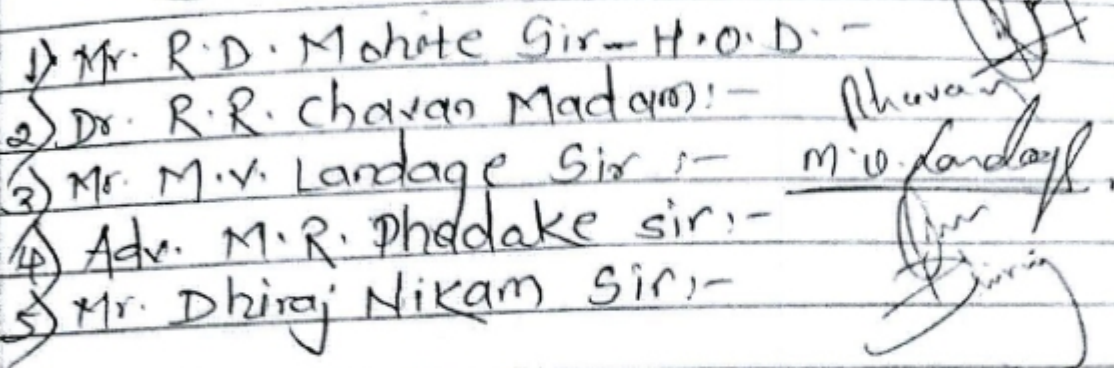 1) Mr. R.D. Mohite Sir - H.O.D. -
2) Dr. R.R. Chavan Madam :-
3) Mr. M.V. Landage Sir :- M.V. Landage
4) Adv. M.R. Phadake sir :-
5) Mr. Dhiraj Nikam Sir :-